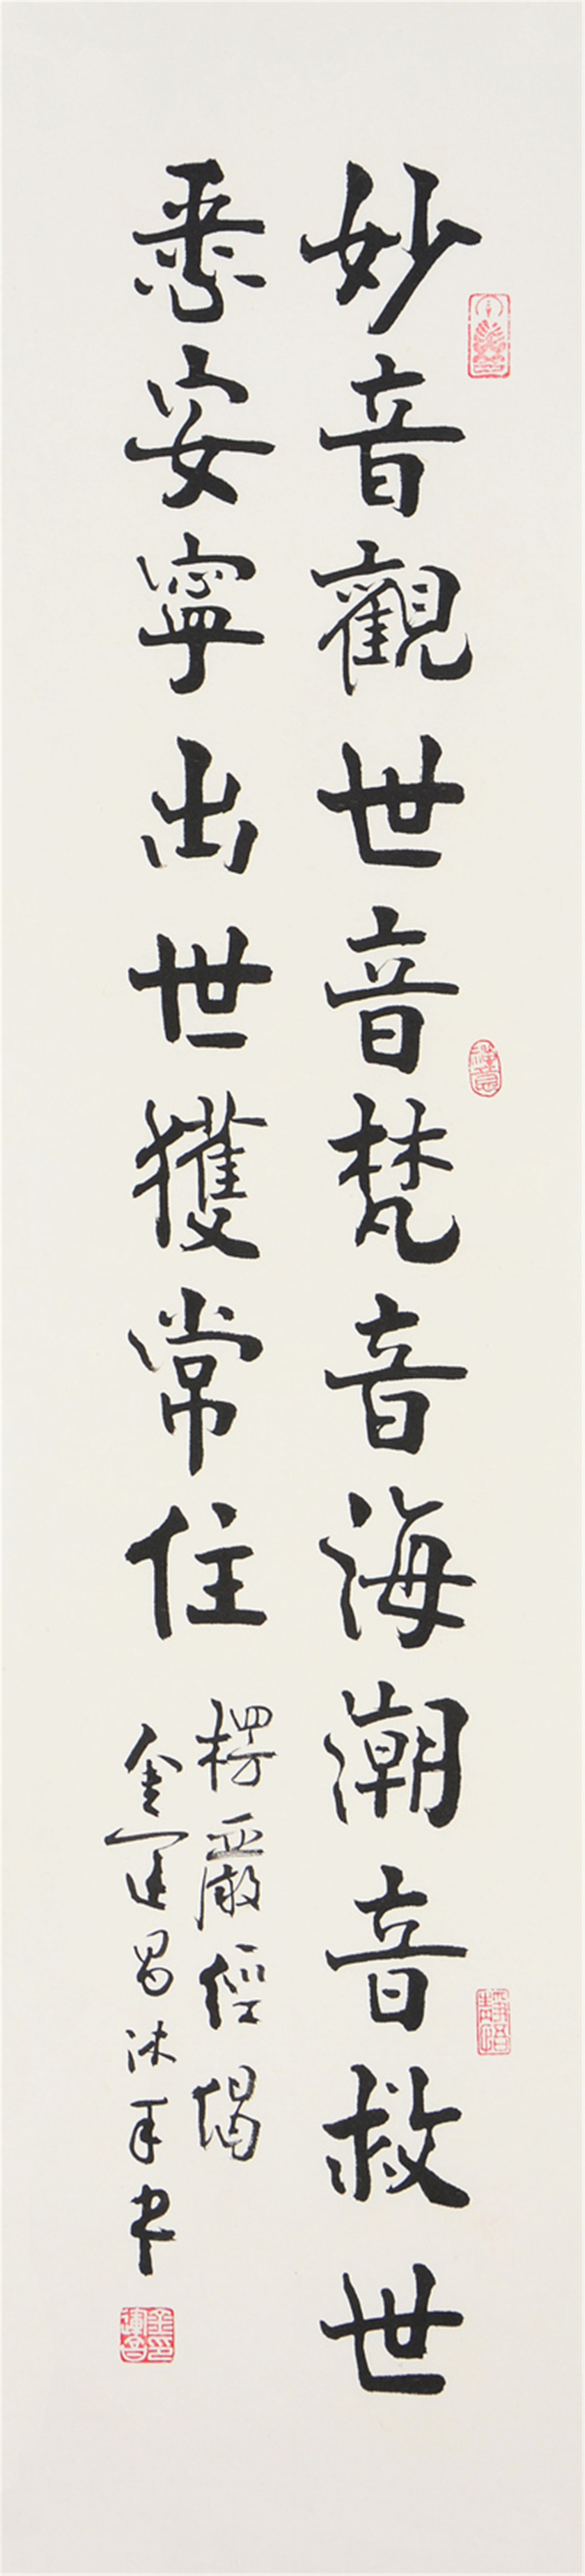 妙音觀世音梵音海潮音救世
悉安寧出世獲常住
楞嚴經偈
金運昌沐手書